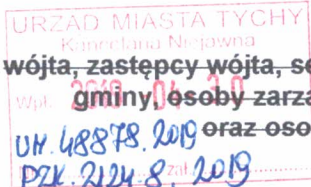 URZĄD MIASTA TYCHY
Kancelaria Niejawna
wójta, zastępcy wójta, se
Wpł. 2019 -04- 30
gminy, osoby zarzą
UM. 48878. 2019 oraz oso
PZK. 2124. 8. 2019
zał.